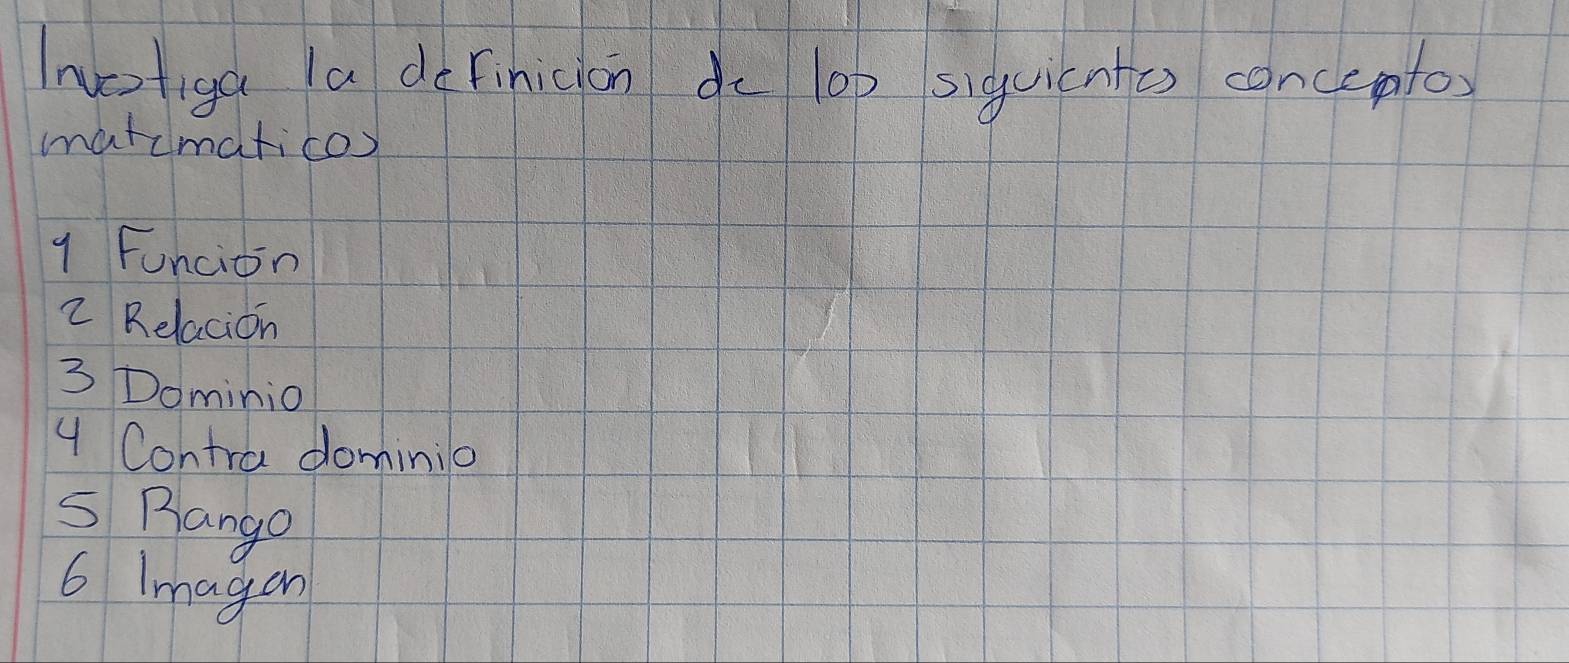 Investiga la definición de los siguientes conceptos
matematicos
1 Función
2 Relación
3 Dominio
4 Contra dominio
5 Rango
6 Imagen